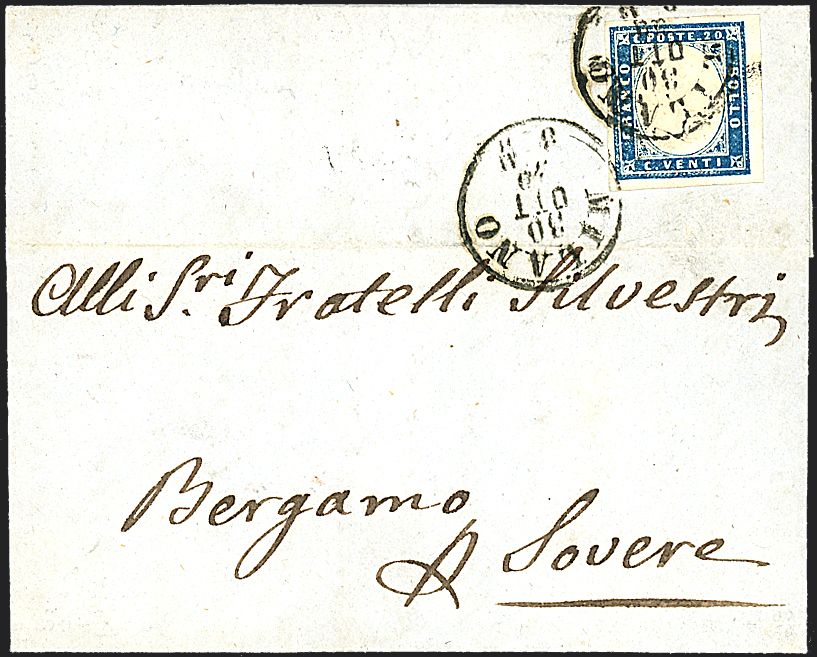 C. POSTE. 20
FRANCO
BOLLO
C. VENTI
MILANO
30
OTT
MILANO
30
OTT
Alli S.ri Fratelli Silvestri
Bergamo
Sovere